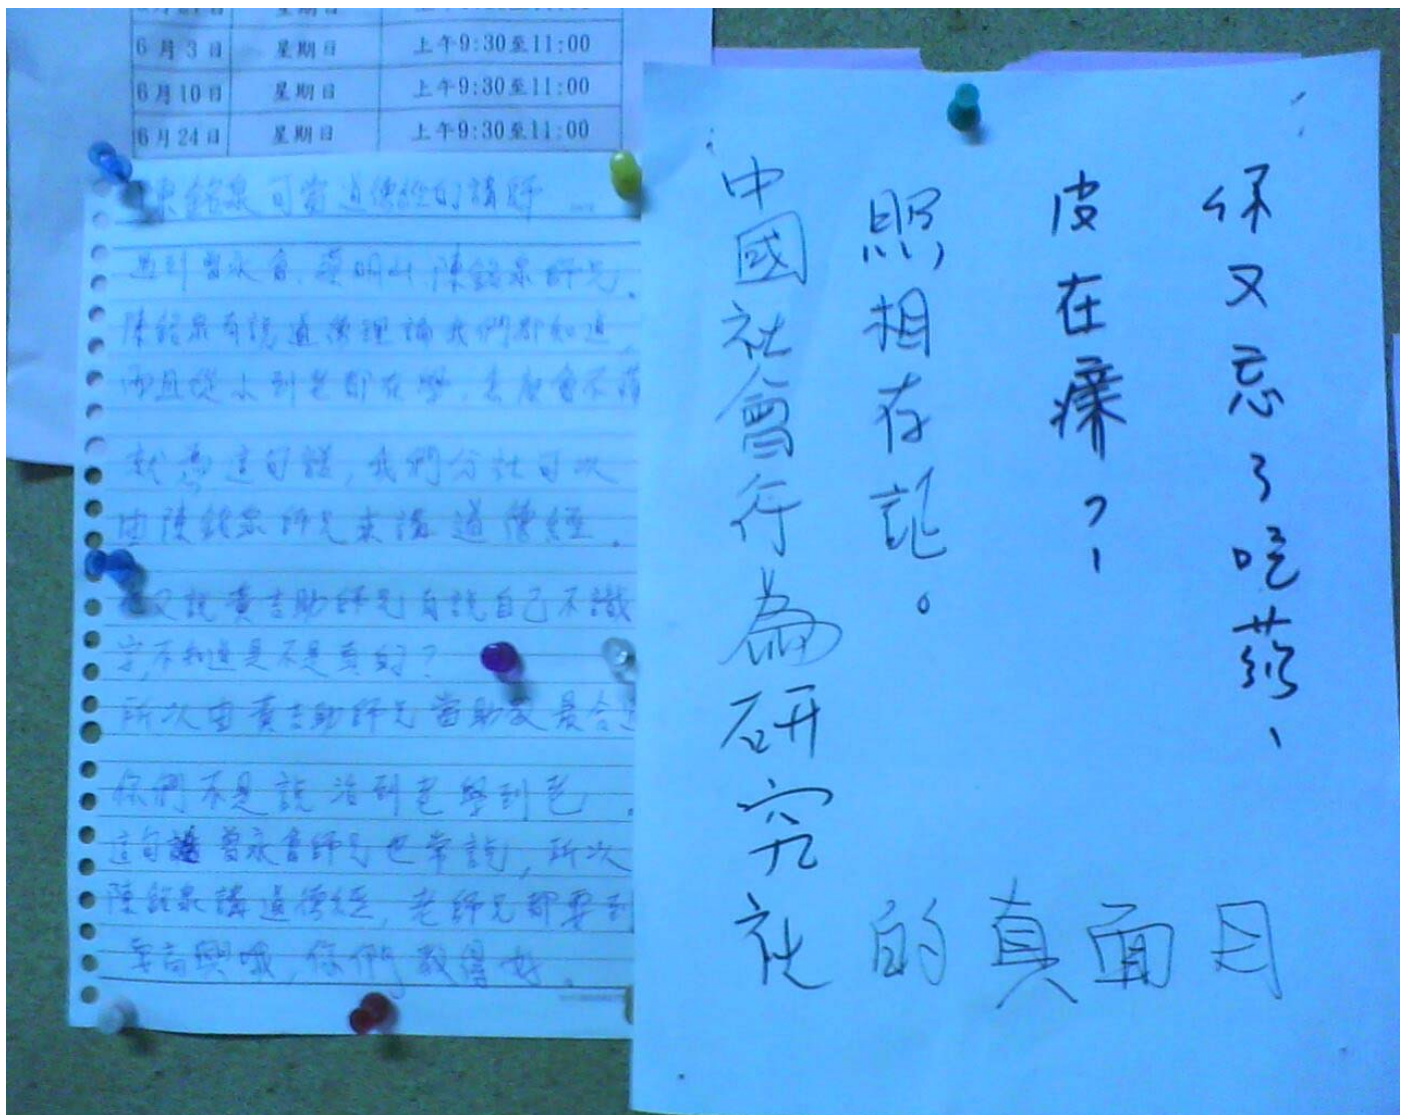 6月3日 星期日 上午9:30至11:00
6月10日 星期日 上午9:30至11:00
6月24日 星期日 上午9:30至11:00
陳銘泉可當道德經的講師
遇到曾永會、陳銘泉師兄、
陳銘泉有說道德理論我們都知道,
而且從小到老都在學,怎麼會不
就為這句話,我們分社可以
由陳銘泉師兄來講道德經。
又說黃吉助師兄自說自己不識
字,不知道是不是真的?
所以由黃吉助師兄當助教是合
你們不是說活到老學到老,
這句話曾永會師兄也常說,所以
陳銘泉講道德經,老師兄都要到
要高興哦,你們教得好。
你又忘了吃葯、
皮在癢?、
照相存証。
中國社會行為研究社
的真面目